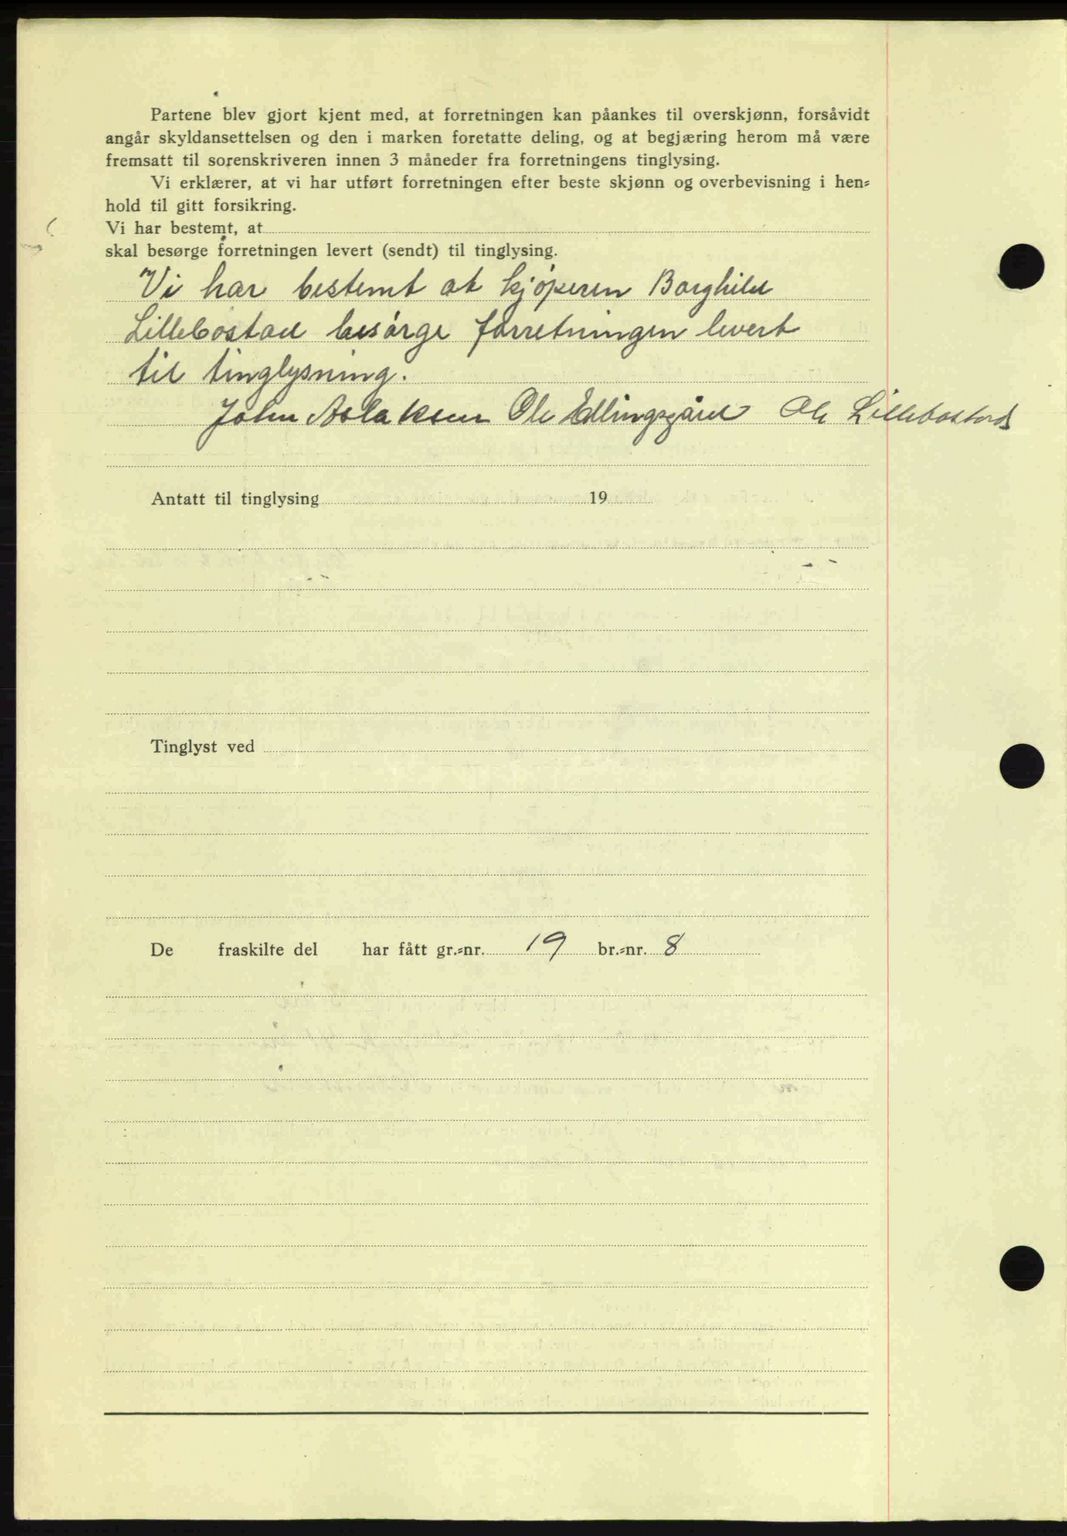 Partene blev gjort kjent med, at forretningen kan påankes til overskjønn, forsåvidt
angår skyldansettelsen og den i marken foretatte deling, og at begjæring herom må være
fremsatt til sorenskriveren innen 3 måneder fra forretningens tinglysing.
Vi erklærer, at vi har utført forretningen efter beste skjønn og overbevisning i hen-
hold til gitt forsikring.
Vi har bestemt, at
skal besørge forretningen levert (sendt) til tinglysing.
Vi har bestemt at kjøperen Borghild
Lillebostad besørge forretningen levert
til tinglysning.
John Aslaksen Ole Edlingsgård Ole Lillebostad
Antatt til tinglysing 19
Tinglyst ved
De fraskilte del har fått gr.-nr. 19 br.-nr. 8